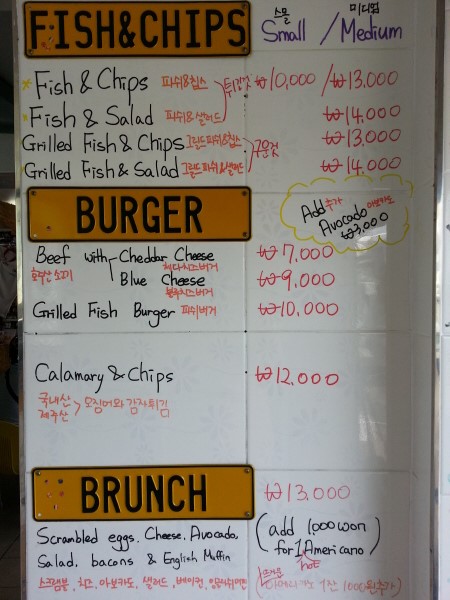 FISH&CHIPS 스몰 Small / 미디엄 Medium
Fish & Chips 피쉬&칩스 튀김것 ₩10,000 / ₩13,000
Fish & Salad 피쉬&샐러드 ₩14,000
Grilled Fish & Chips 그릴드피쉬&칩스 구운것 ₩13,000
Grilled Fish & Salad 그릴드피쉬&샐러드 ₩14,000
BURGER
Add 추가
Avocado 아보카도
₩3,000
Beef with Cheddar Cheese ₩7,000
호주산소고기 체다치즈버거
Blue Cheese ₩9,000
블루치즈버거
Grilled Fish Burger 피쉬버거 ₩10,000
Calamary & Chips ₩12,000
국내산 오징어와 감자튀김
제주산
BRUNCH ₩13,000
Scrambled eggs, Cheese, Avocado,
Salad, bacons & English Muffin
스크램블, 치즈, 아보카도, 샐러드, 베이컨, 잉글리쉬머핀
(add 1,000 won
for 1 Americano)
hot
(뜨거운 아메리카노 1잔 1000원추가)